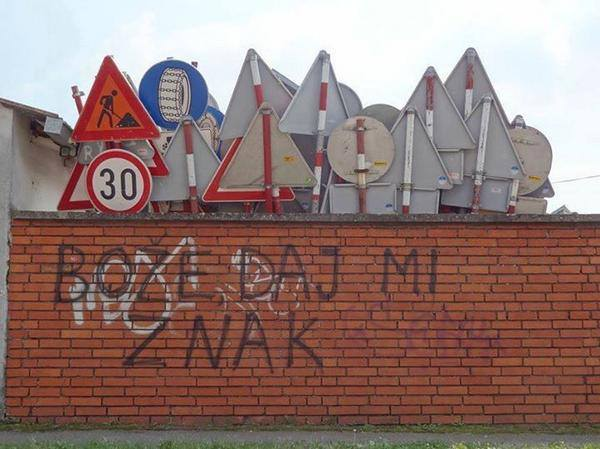 30
BOŽE DAJ MI
ZNAK